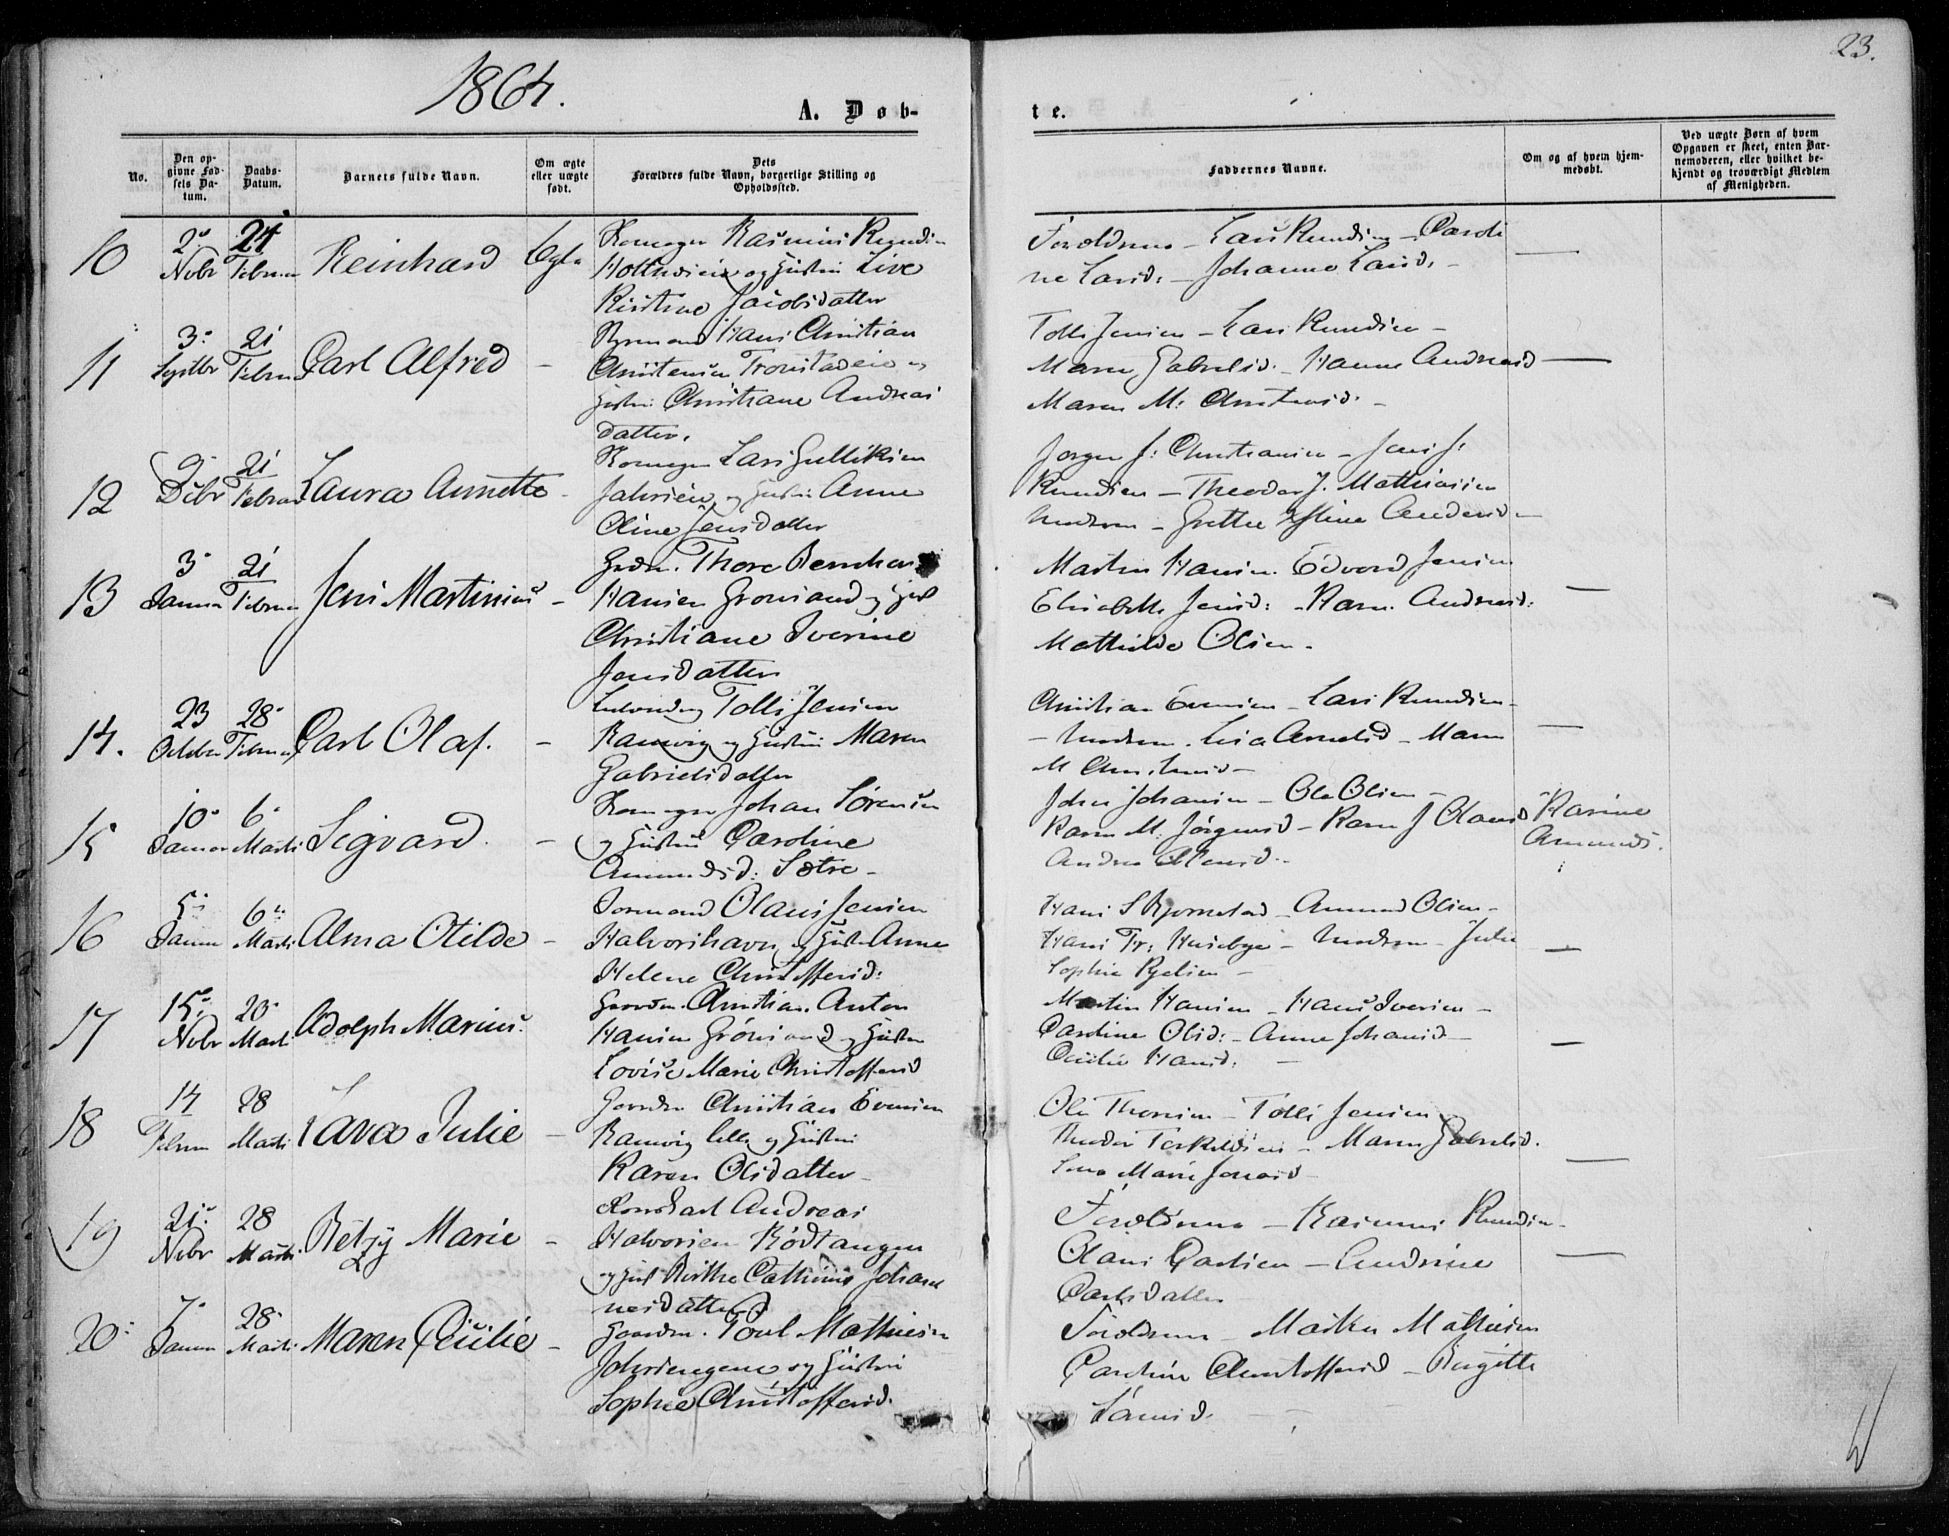 1864.
23.
A. Døb-
te.
No.
Den op-
givne Fød-
sels Da-
tum.
Daabs-
Datum.
Barnets fulde Navn.
Om ægte
eller uægte
født.
Dets
Forældres fulde Navn, borgerlige Stilling og
Opholdssted.
Faddernes Navne.
Om og af hvem hjem-
medøbt.
Ved uægte Børn af hvem
Opgaven er skeet, enten Bar-
nemoderen, eller hvilket be-
kjendt og troværdigt Medlem
af Menigheden.
10
2
Novbr
21
Februar
Reinhard
Ægte
Rasmus Knudsen
og Hustru Live
Kirstine Jacobsdatter
Forældrene - Lars Knudsen - Caroli
ne Larsd: - Johanne Larsd. -
11
3
Septbr
21
Februar
Carl Alfred -
Styrmand Hans Christian
Christensen og
Hustru Christiane Andreas
datter.
Tolls Jensen - Lars Knudsen -
Maren Gabrielsd. - Hanne Andreasd -
Maren M: Christensd. -
12
9
Decbr
21
Februar
Laura Annette -
Lars Gulliksen
og Hustru Anne
Oline Jensdatter
Jørgen J: Christiansen - Jens J:
Knudsen - Theodor J. Mathiasen
Moderen - Grethe Andersd -
13
3
Januar
21
Februar
Jens Martinius -
Grdm. Thore Bernhard
Hansen Grønsand og Hust
Christiane Iverine
Jensdatter
Martin Hansen. Edvard Jensen
Elisabeth Jensd: - Karn. Andreasd: -
Mathilde Olsen.
14.
23
October
28
Februar
Carl Olaf. -
Tolls Jensen
Ramvig og Hustru Maren
Gabrielsdatter
Christian Evensen - Lars Knudsen -
- Moderen. Lisa - Maren
M Christensd - -
15
10
Januar
6
Marts
Sigvard. -
Johan Sørensen
og Hustru Caroline
Amundsd: Sætre -
Johan Johansen - Ole Olsen -
Karen M. Jørgensd - Karn J Olausd
Andrea
Karine
Amunds.
16
5
Januar
6
Marts
Alma Otilde -
Sømand Olaus Jensen
Halvorshavn og Hustru Anne
Helene Christoffersd:
Hans S Bjørnstad - Amund Olsen -
Hans Fr: Husebye - Moderen - Julie
Sophie -
17
15
Novbr
20
Marts
Adolph Marius.
Gaardm. Christian Anton
Hansen Grønsand og Hustru
Lovise Marie Christoffersd
Martin Hansen - Hans Iversen -
Caroline Olsd: - Anne Johansd -
Cecilie Hansd. -
18
14
Februar
28
Marts
Lava Julie -
Gaardm Christian Evensen
Ramvig lille og Hustru
Karen Olsdatter -
Ole Thoresen - Tolls Jensen
Theodor Torkildsen - Maren Gabrielsd.
Marie Jensd -
19
21
Novbr
28
Marts
Betzy Marie -
Andreas
Halvorsen Rødtangen
og Hust Berthe Cathrine Johan
nesdatter
Forældrene - Rasmus Knudsen -
Olaus Carlsen - Andrine
Carlsdatter
20
7
Januar
28
Marts
Maren Cecilie -
Gaardm. Poul Mathiesen
og Hustru
Sophie Christoffersd.
Forældrene - Martin Mathiesen
Caroline Christoffersd - Birgitte